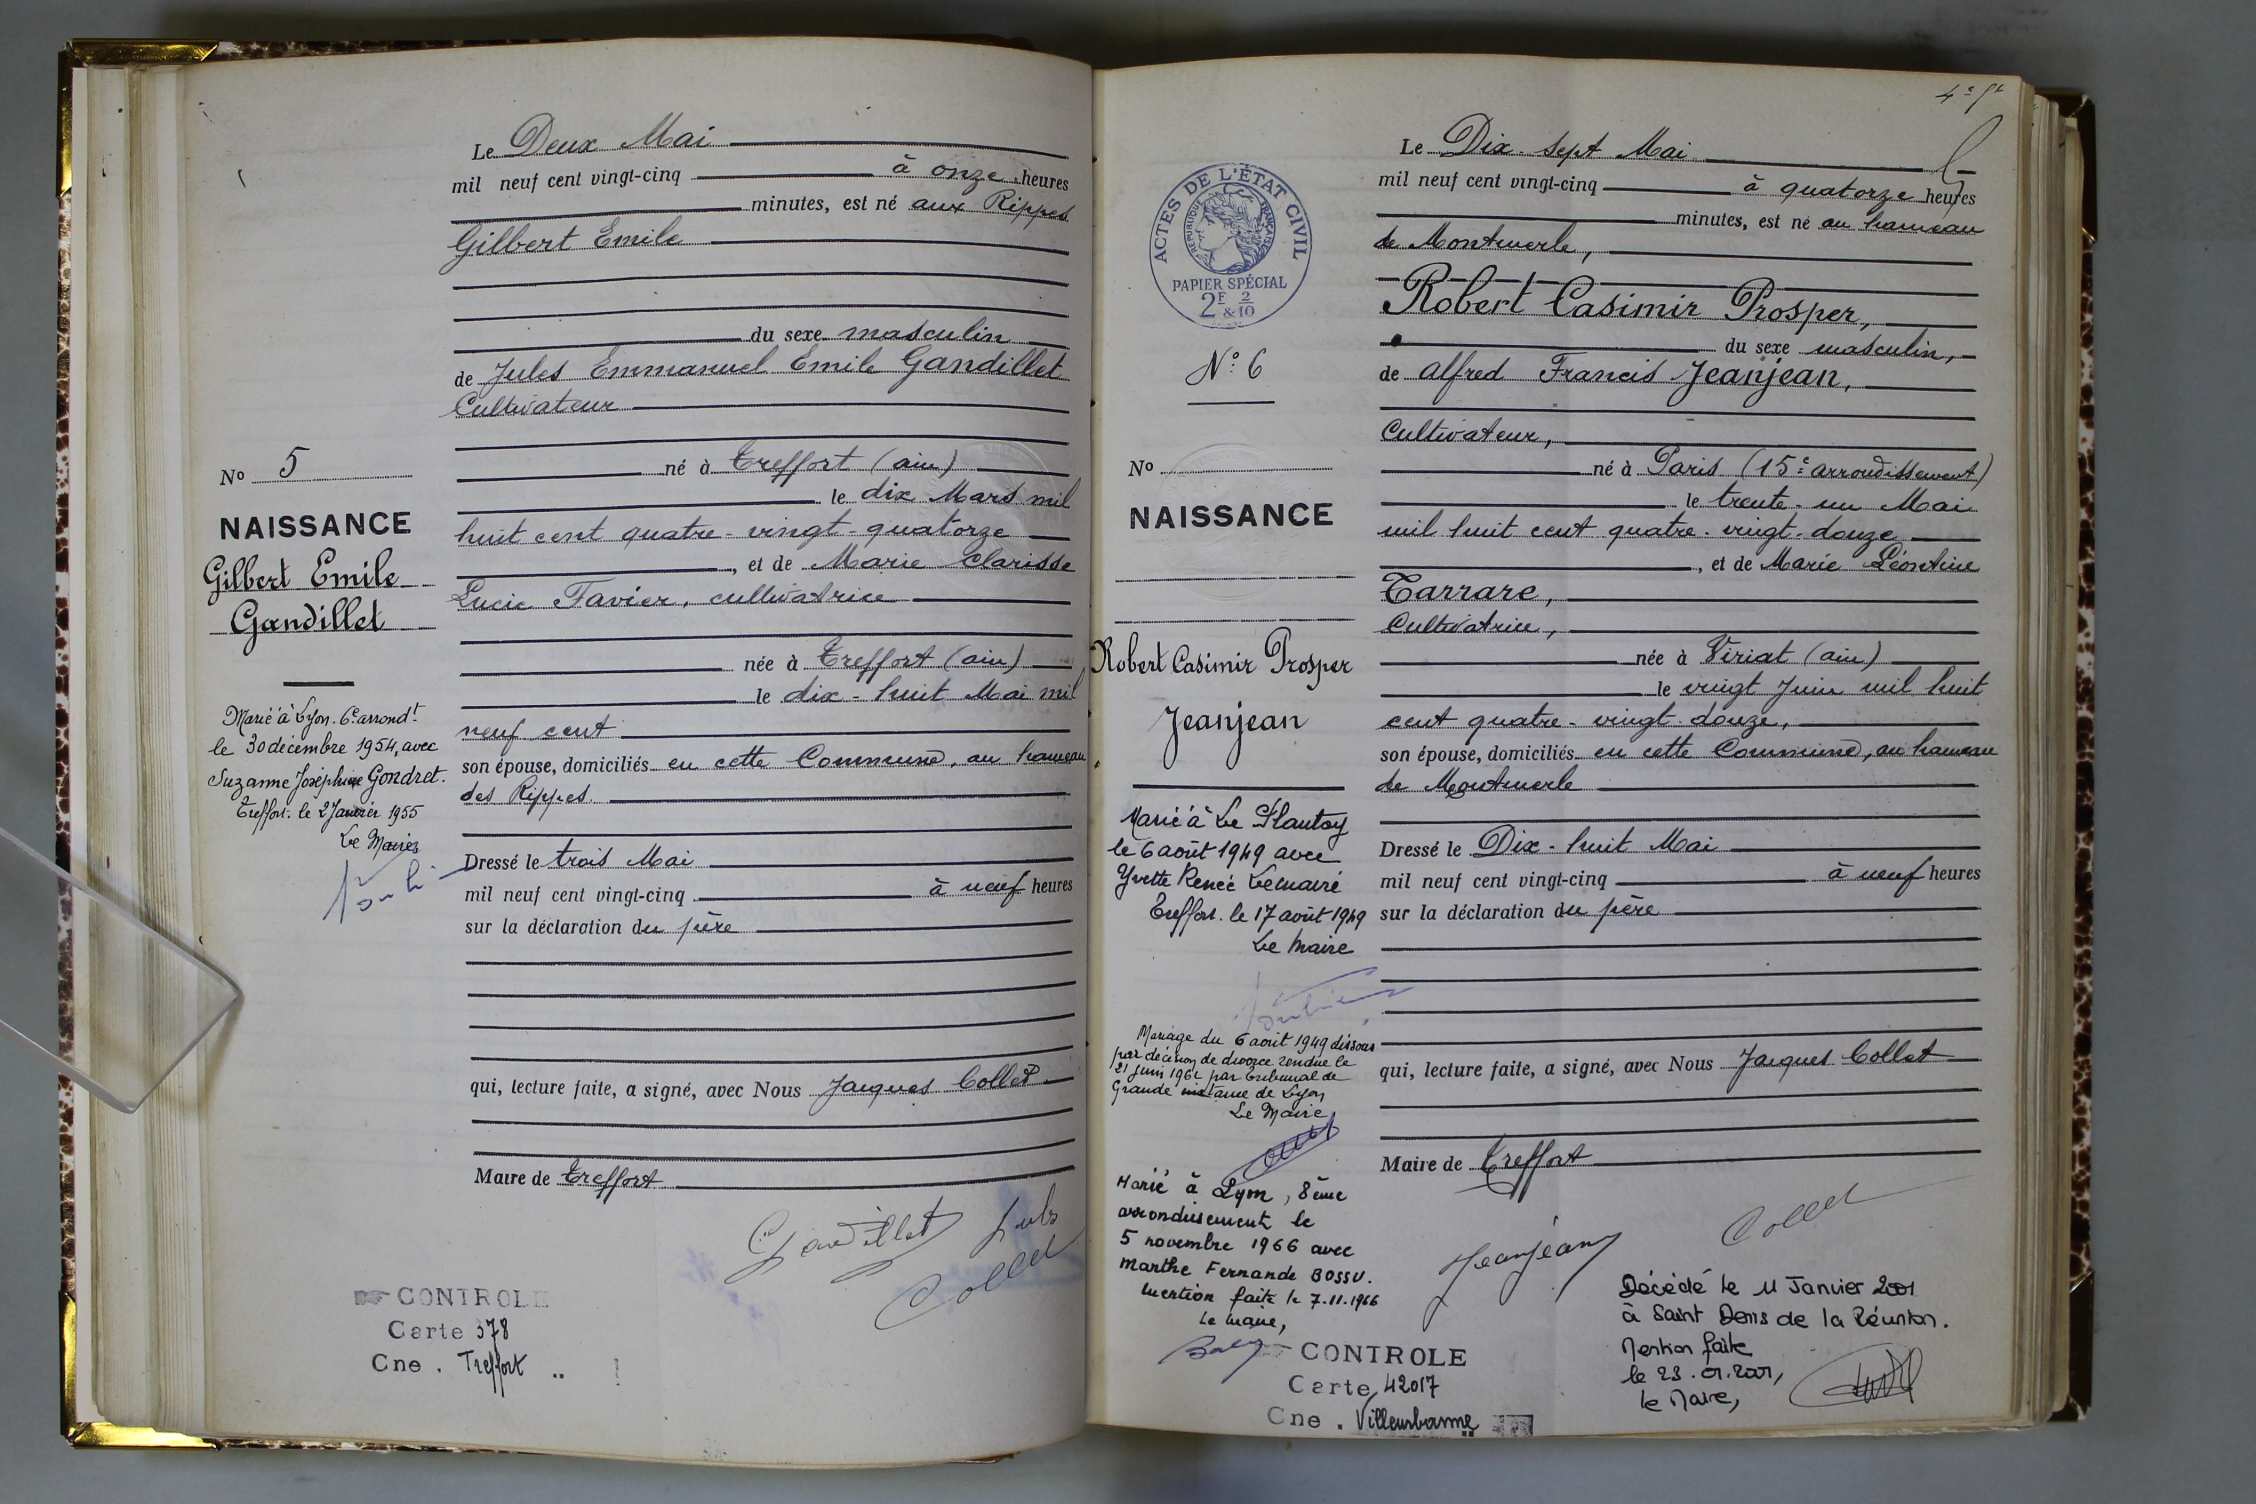 Le Deux Mai
mil neuf cent vingt-cinq à onze heures
minutes, est né aux Rippes
Gilbert Emile
du sexe masculin
de Jules Emmanuel Emile Gandillet
Cultivateur
né à Treffort (ain)
le dix Mars mil
huit cent quatre-vingt-quatorze
, et de Marie Clarisse
Lucie Favier, cultivatrice
née à Treffort (ain)
le dix-huit Mai mil
neuf cent
son épouse, domiciliés en cette Commune, au hameau
des Rippes
Dressé le trois Mai
mil neuf cent vingt-cinq à neuf heures
sur la déclaration du père
qui, lecture faite, a signé, avec Nous Jacques Collet
Maire de Treffort
Gandillet Jules
Collet
No 5
NAISSANCE
Gilbert Emile
Gandillet
Marié à Lyon. 6e arrondt
le 30 décembre 1954, avec
Suzanne Joséphine Gondret.
Treffort. le 2 Janvier 1955
Le Maire
CONTROLE
Carte 378
Cne. Treffort
4e ft
ACTES DE L'ÉTAT CIVIL
RÉPUBLIQUE FRANÇAISE
PAPIER SPÉCIAL
2F & 2/10
No: 6
No
NAISSANCE
Robert Casimir Prosper
Jeanjean
Marié à Le Plantay
le 6 août 1949 avec
Yvette Renée Lemaire
Treffort. le 17 août 1949
Le Maire
Mariage du 6 août 1949 dissous
par décision de divorce rendue le
21 juin 196 par Tribunal de
Grande instance de Lyon
Le Maire
Marié à Lyon, 8ème
arrondissement le
5 novembre 1966 avec
Marthe Fernande BOSSU.
Mention faite le 7.11.1966
Le Maire,
CONTROLE
Carte 42017
Cne. Villeurbanne
Le Dix-sept Mai
mil neuf cent vingt-cinq à quatorze heures
minutes, est né au hameau
de Montmerle,
Robert Casimir Prosper,
du sexe masculin,
de Alfred Francis Jeanjean,
Cultivateur,
né à Paris (15e arrondissement)
le trente-un Mai
mil huit cent quatre-vingt-douze
, et de Marie Léontine
Tarrare,
Cultivatrice,
née à Viriat (ain)
le vingt Juin mil huit
cent quatre-vingt-douze,
son épouse, domiciliés en cette Commune, au hameau
de Montmerle
Dressé le Dix-huit Mai
mil neuf cent vingt-cinq à neuf heures
sur la déclaration du père
qui, lecture faite, a signé, avec Nous Jacques Collet
Maire de Treffort
Jeanjean
Collet
Décédé le 11 Janvier 2001
à Saint Denis de la Réunion.
Mention faite
le 23.01.2001,
le Maire,